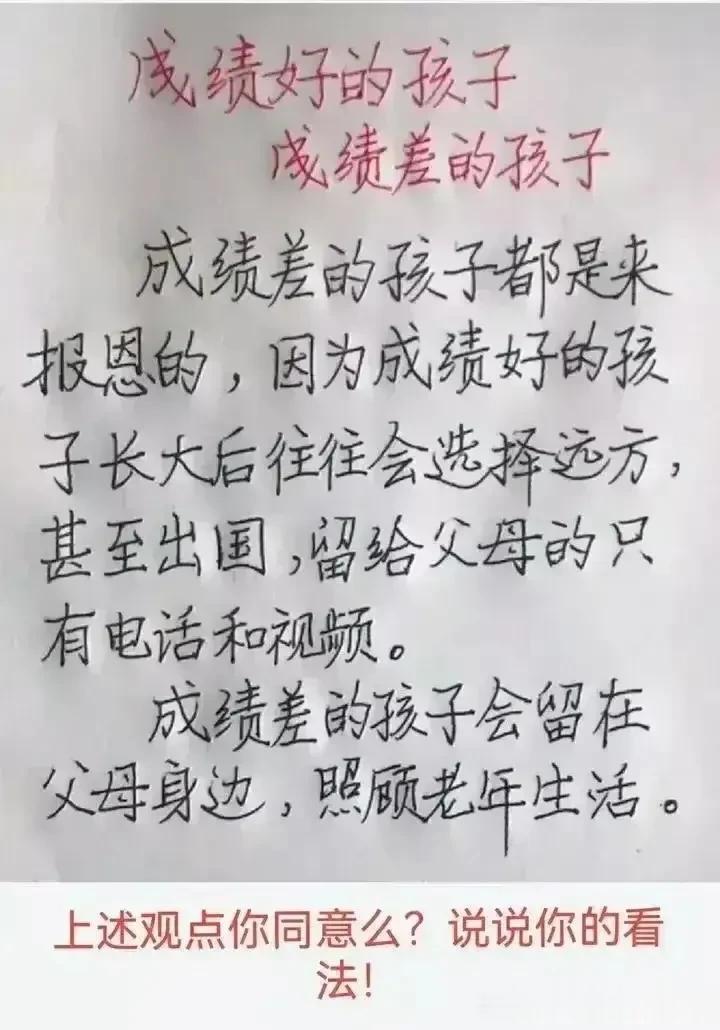 成绩好的孩子
成绩差的孩子
成绩差的孩子都是来
报恩的，因为成绩好的孩
子长大后往往会选择远方，
甚至出国，留给父母的只
有电话和视频。
成绩差的孩子会留在
父母身边，照顾老年生活。
上述观点你同意么？说说你的看
法！